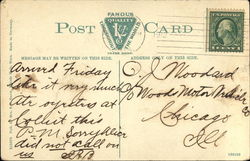 FAMOUS
QUALITY
POST CARD
MESSAGE MAY BE WRITTEN ON THIS SIDE.
ADDRESS ONLY ON THIS SIDE.
Arrived Friday
like it very much
Ate oysters at
this
P.M.
did not call on
us
C. J. Woodard
Woods Motor Vehicle Co
Chicago
Ill